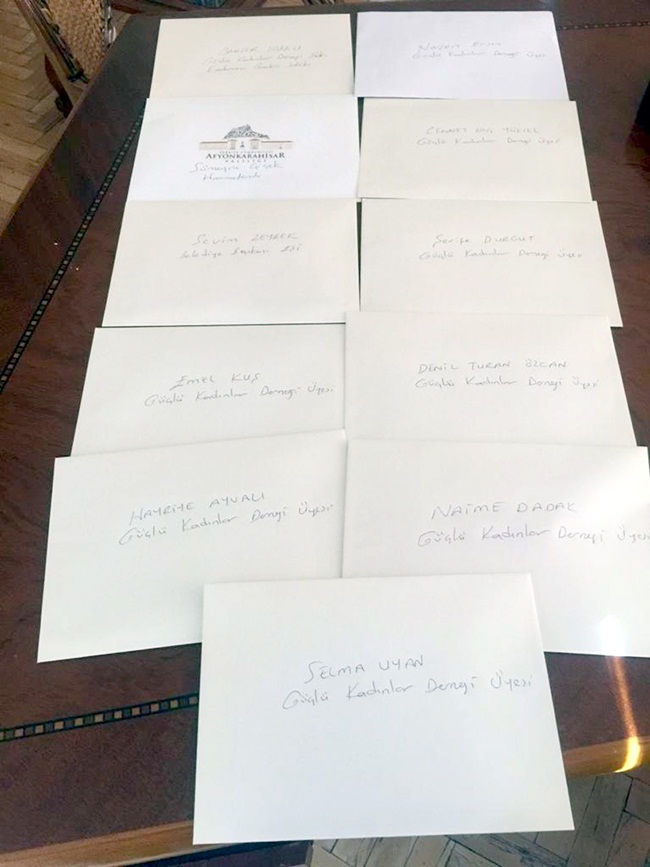 Güçlü Kadınlar Derneği
Güçlü Kadınlar Derneği Üyesi
AFYONKARAHİSAR
VALİLİĞİ
Sümeyra
CENNET YÜKSEL
Güçlü Kadınlar Derneği Üyesi
Sevim ZEYBEK
Belediye Başkan Eşi
Şerife DURGUT
Güçlü Kadınlar Derneği Üyesi
EMEL KUŞ
Güçlü Kadınlar Derneği Üyesi
DENİL TURAN ÖZCAN
Güçlü Kadınlar Derneği Üyesi
HAYRİYE AYVALI
Güçlü Kadınlar Derneği Üyesi
NAİME DADAK
Güçlü Kadınlar Derneği Üyesi
SELMA UYAN
Güçlü Kadınlar Derneği Üyesi